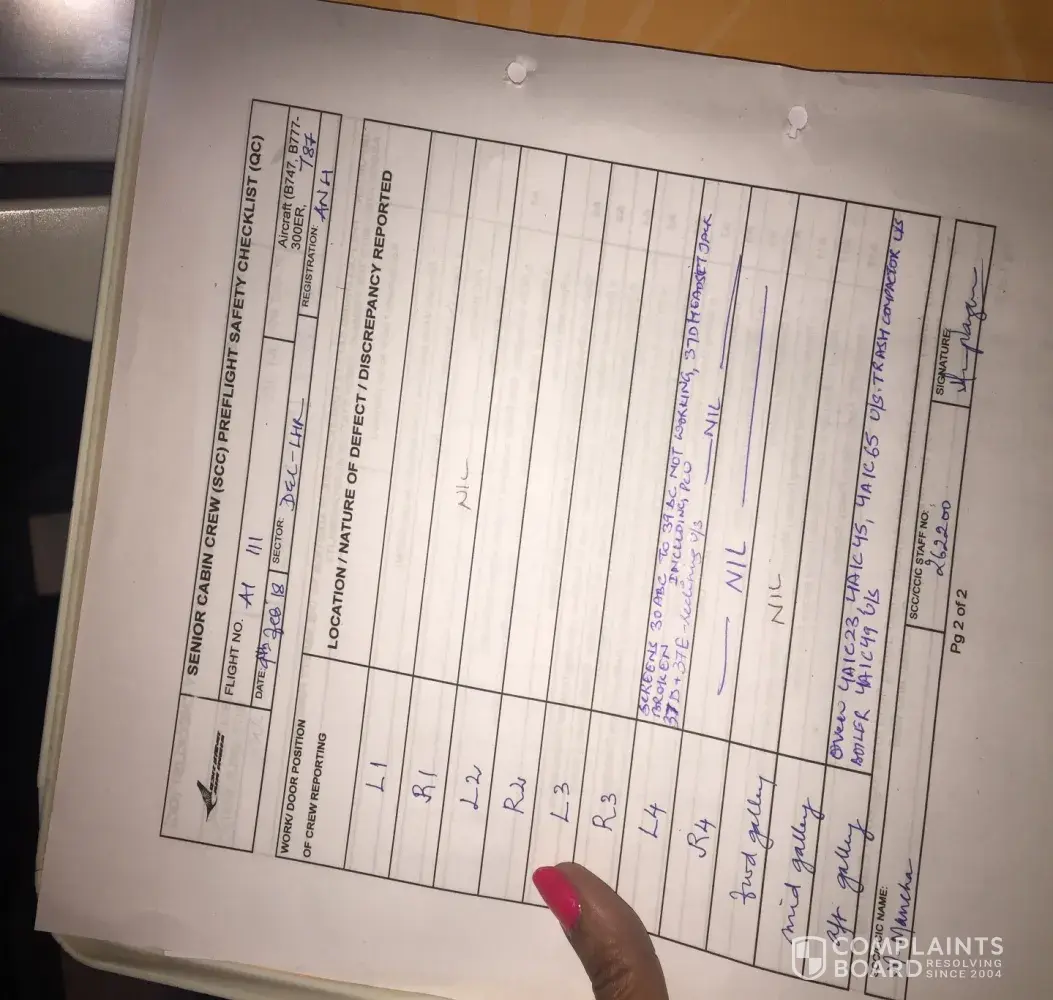 SENIOR CABIN CREW (SCC) PREFLIGHT SAFETY CHECKLIST (QC)
FLIGHT NO. A1 111
Aircraft (B747, B777-
300ER, 787
DATE: 9th Feb 18 SECTOR: DEL-LHR
REGISTRATION: ANH
WORK/ DOOR POSITION
OF CREW REPORTING
LOCATION / NATURE OF DEFECT / DISCREPANCY REPORTED
L1
R1
L2 NIL
R2
L3
R3
L4 SCREENS 30ABC TO 39ABC NOT WORKING, 37D HEADSET JACK
BROKEN INCLUDING PCU
R4 37D + 37E - reclining u/s NIL
fwd galley NIL
mid galley NIL
aft galley OVEN 4A1C23, 4A1C45, 4A1C65 U/S. TRASH COMPACTOR U/S
BOILER 4A1C49 U/S
SCC/CCIC NAME:
SCC/CCIC STAFF NO:
262200
SIGNATURE:
Pg 2 of 2
COMPLAINTS
BOARD RESOLVING
SINCE 2004